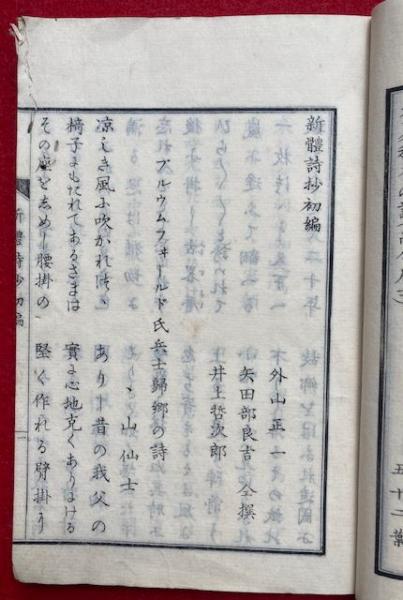 新體詩抄初編
外山正一
矢田部良吉 仝撰
井上哲次郎
ブルウムフヰールド氏兵士歸郷の詩
ヽ山仙士
涼しき風に吹かれつゝ ありし昔の我父の
椅子にもたれてあるさまは 實に心地克くありにける
その座をしめし腰掛の 堅く作れる臂掛に
新體詩抄初編
一
五十二